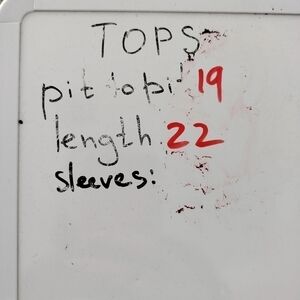 TOPS
pit to pit 19
length 22
sleeves: